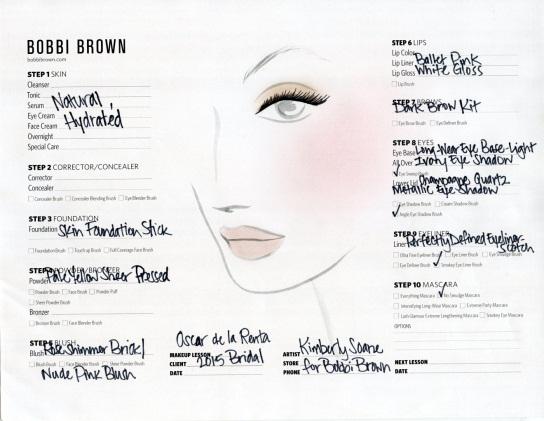 BOBBI BROWN
bobbibrown.com
STEP 1 SKIN
Cleanser
Tonic
Serum
Eye Cream
Face Cream
Overnight
Special Care
Natural,
Hydrated
STEP 2 CORRECTOR/CONCEALER
Corrector
Concealer
Concealer Brush Concealer Blending Brush Eye Blender Brush
STEP 3 FOUNDATION
Foundation Skin Foundation Stick
Foundation Brush Touch up Brush Full Coverage Face Brush
STEP 4 POWDER/BRONZER
Powder Pale Yellow Sheer Pressed
Powder Brush Face Brush Powder Puff
Sheer Powder Brush
Bronzer
Bronzer Brush Face Blender Brush
STEP 5 BLUSH
Blush Rose Shimmer Brick/
Blush Brush Face Blender Brush Sheer Powder Brush
Nude Pink Blush
Oscar de la Renta
MAKEUP LESSON
CLIENT 2015 Bridal
DATE
Kimberly Soane
ARTIST
STORE for Bobbi Brown
PHONE
STEP 6 LIPS
Lip Color
Lip Liner Ballet Pink
Lip Gloss White Gloss
Lip Brush
STEP 7 BROWS
Dark Brow Kit
Eye Brow Brush Eye Definer Brush
STEP 8 EYES
Eye Base Long-Wear Eye Base-Light
All Over Ivory Eye Shadow
Eye Sweep Brush
Lower Lid Champagne Quartz
Metallic Eye Shadow
Eye Shadow Brush Cream Shadow Brush
Angle Eye Shadow Brush
STEP 9 EYELINER
Liner Perfectly Defined Eyeliner-
Scotch
Ultra Fine Eyeliner Brush Eye Liner Brush Eye Smudge Brush
Eye Definer Brush Smokey Eye Liner Brush
STEP 10 MASCARA
Everything Mascara No Smudge Mascara
Intensifying Long-Wear Mascara Extreme Party Mascara
Lash Glamour Extreme Lengthening Mascara Smokey Eye Mascara
OPTIONS
NEXT LESSON
DATE